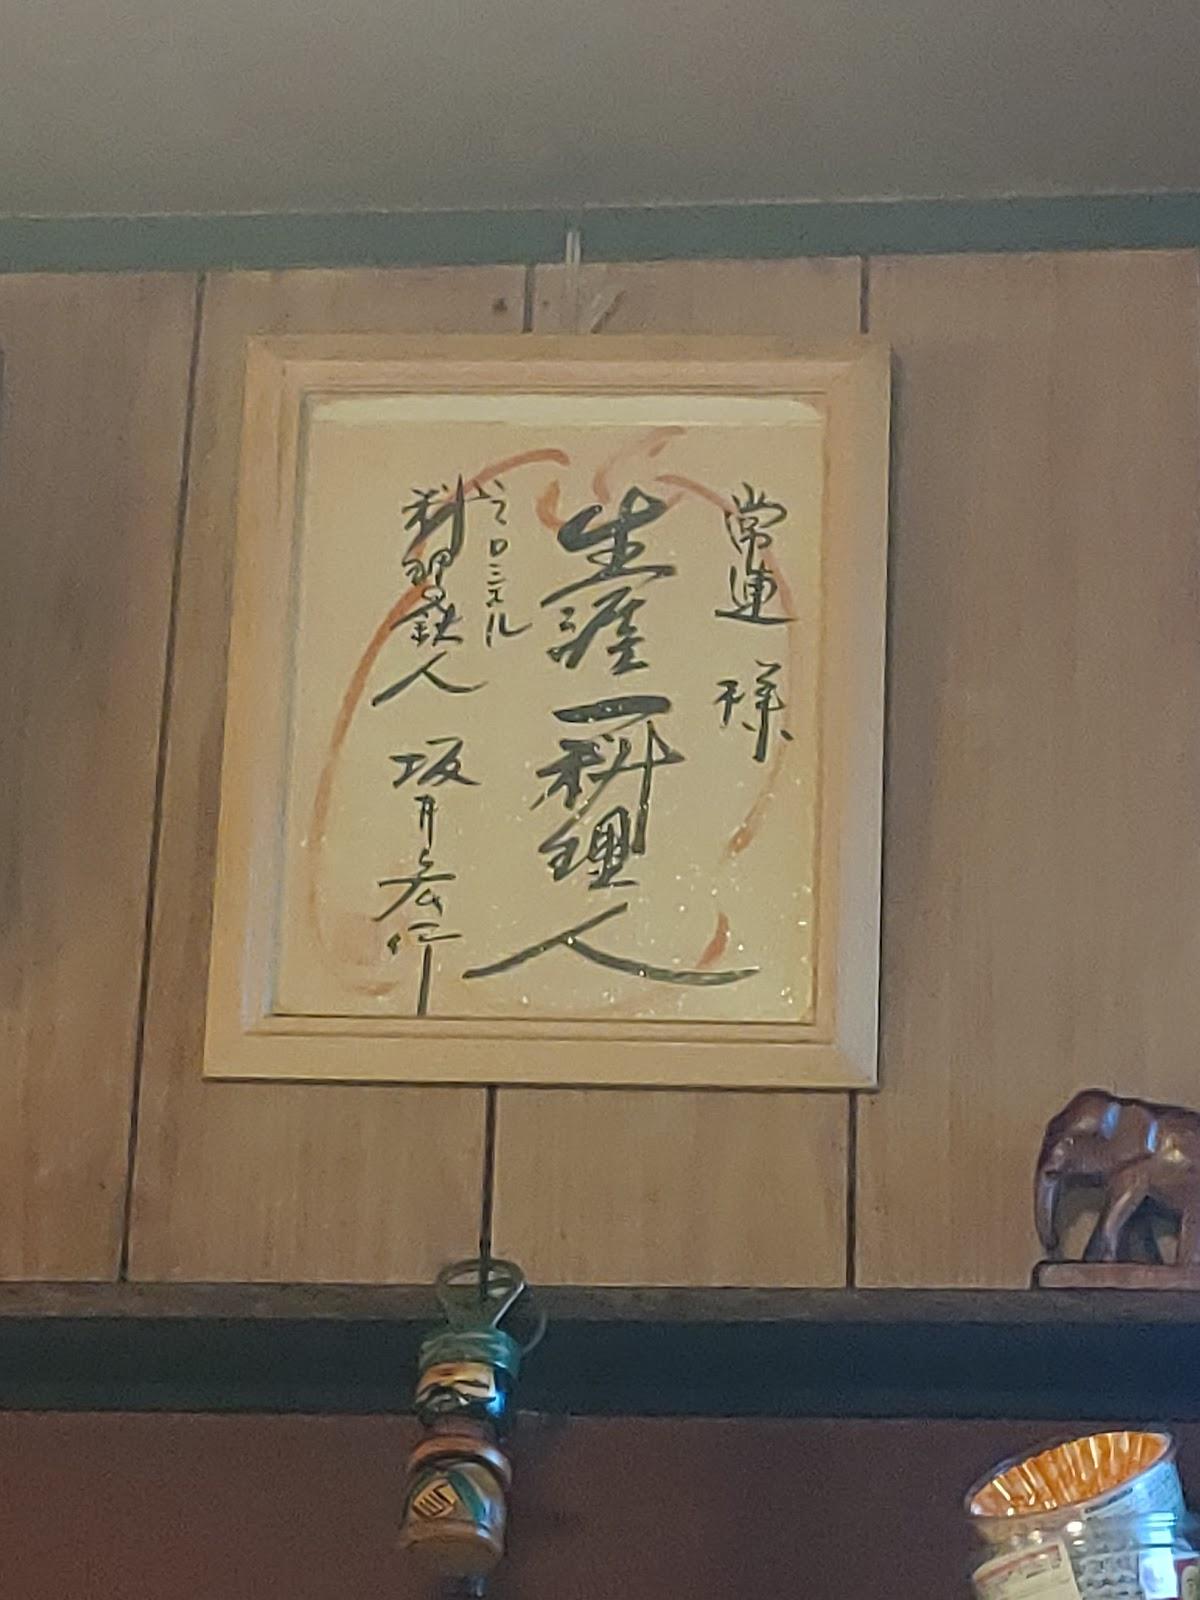 常連 様
生涯一料理人
ラ・ロシェル
料理の鉄人 坂井宏行